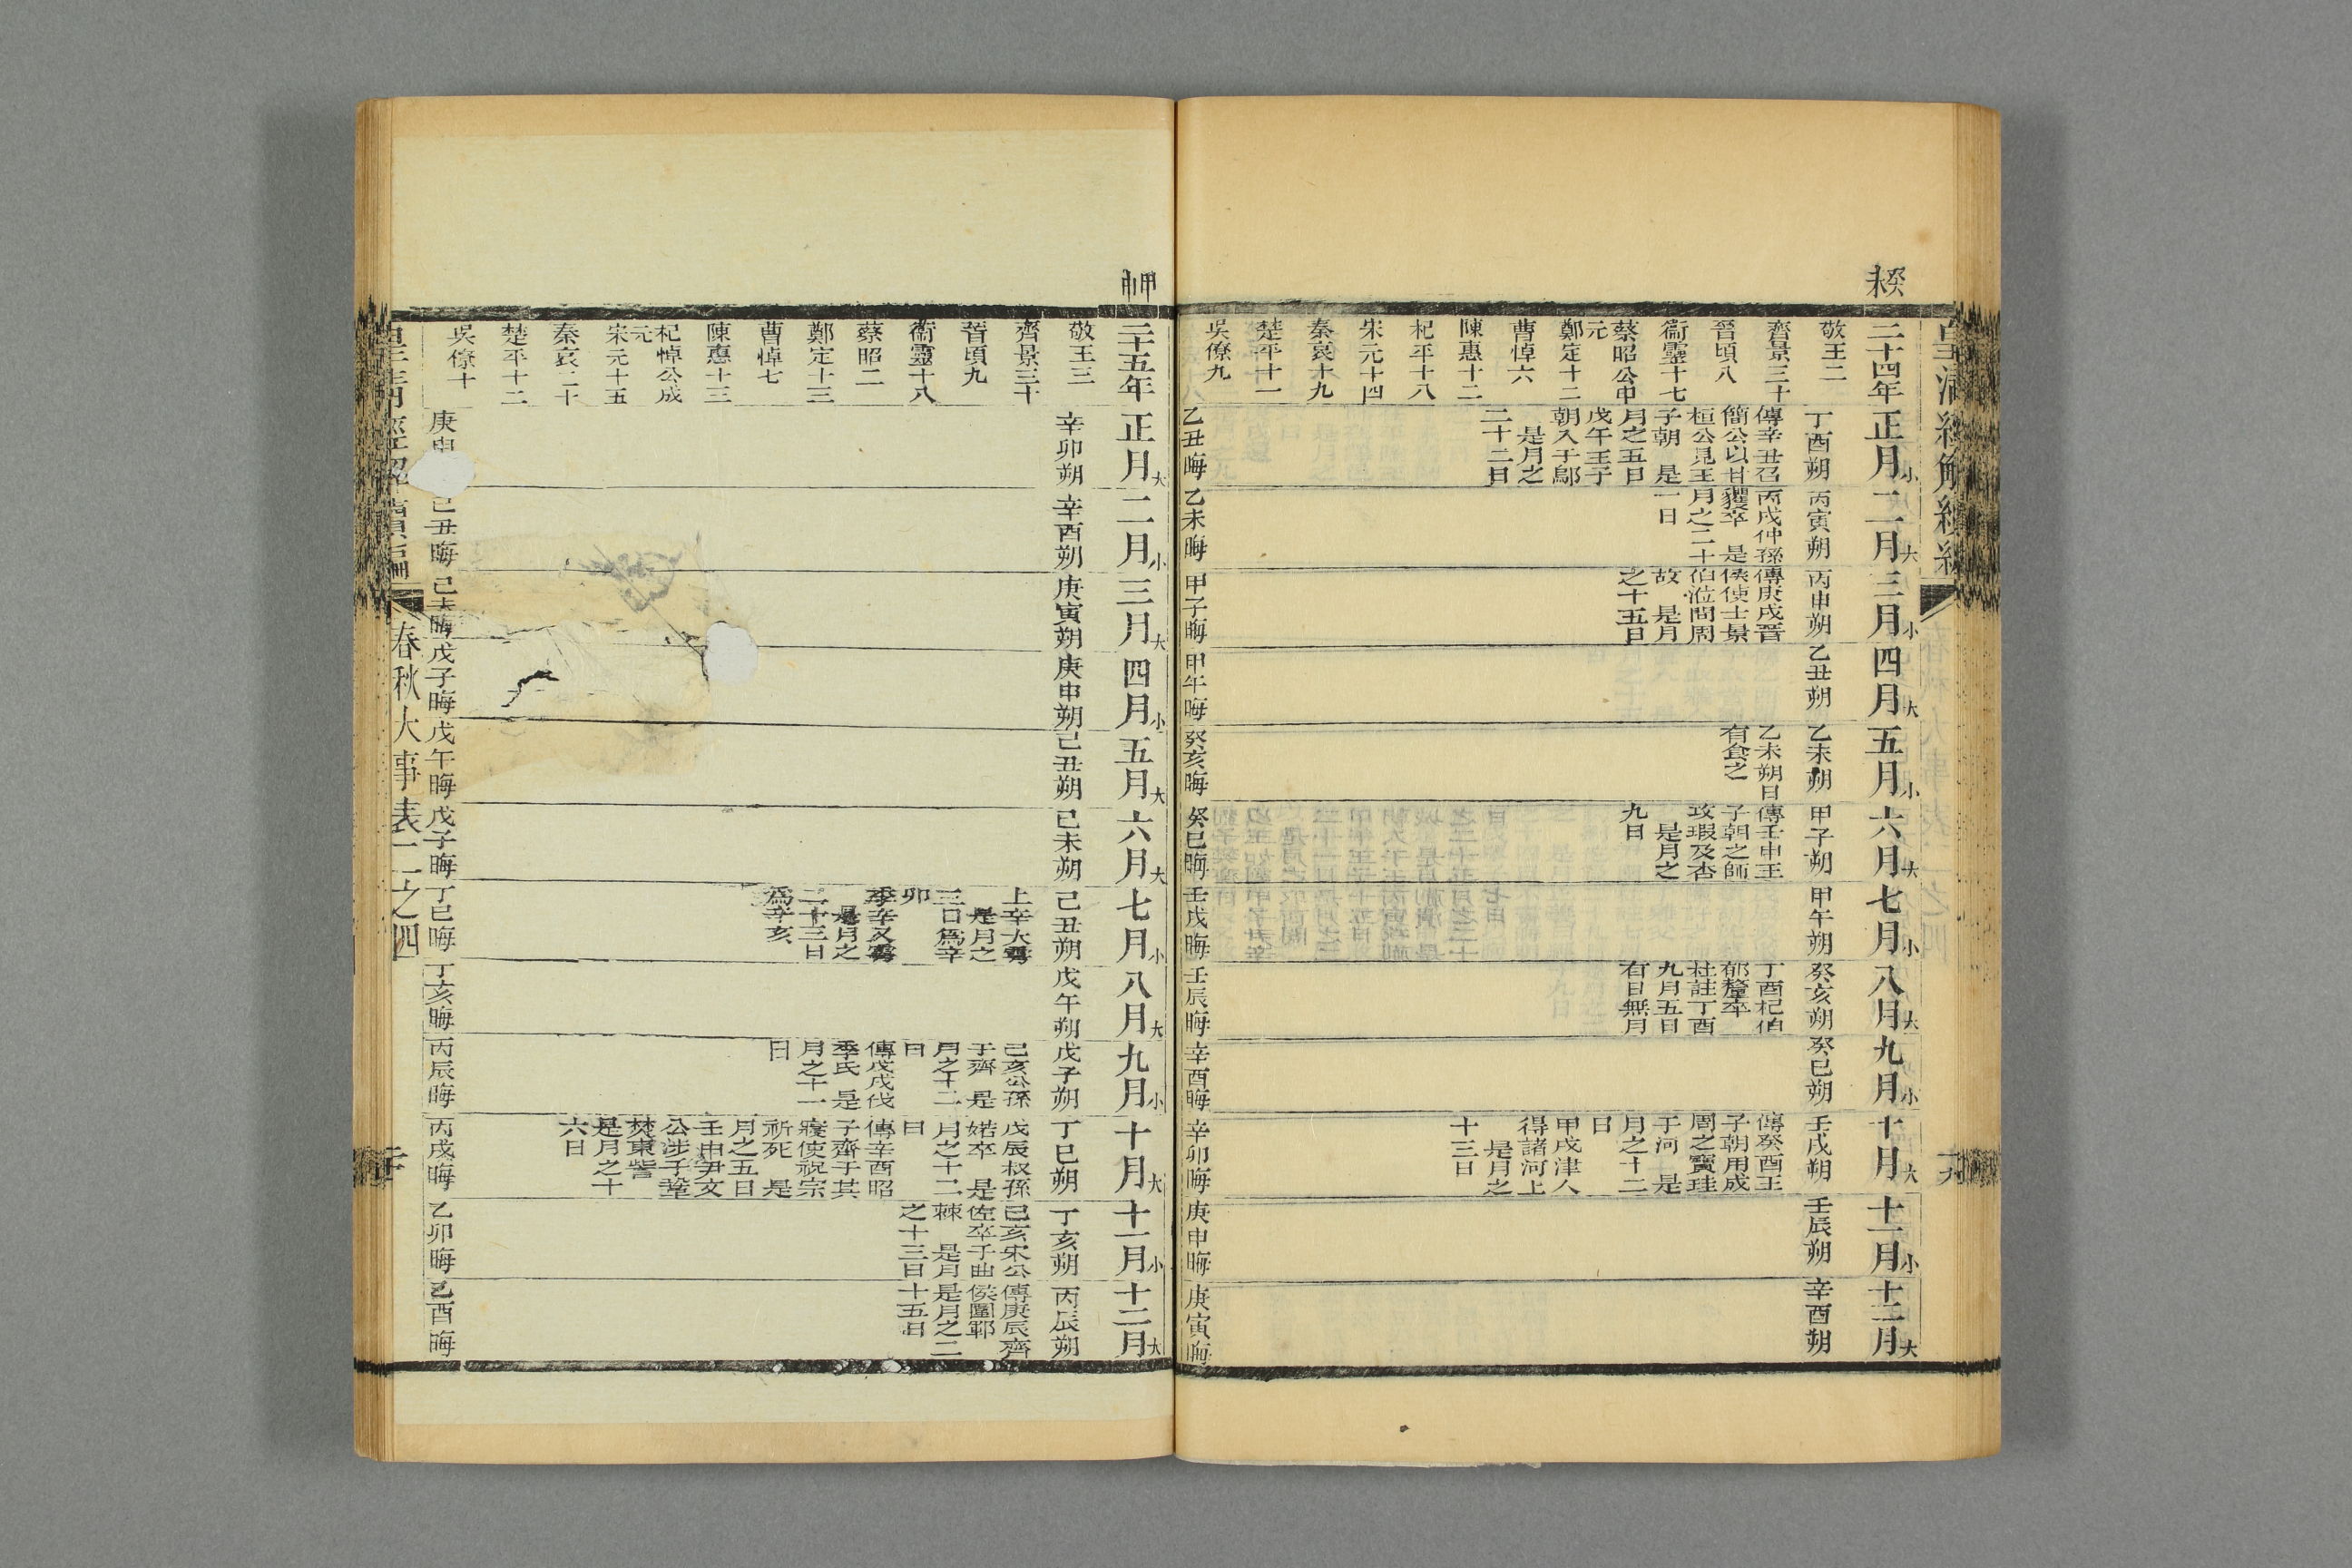 癸未
二十四年
敬王二
齊景三十
晉頃八
衞靈十七
蔡昭公申
元
鄭定十二
曹悼六
陳惠十二
杞平十八
宋元十四
秦哀十九
楚平十一
吳僚九
正月小
丁酉朔
傳辛丑召
簡公以甘
桓公見王
子朝 是
月之五日
戊午王子
朝入于鄔
是月之
二十二日
乙丑晦
二月大
丙寅朔
丙戌仲孫
貜卒 是
月之二十
一日
乙未晦
三月小
丙申朔
傳庚戌晉
侯使士景
伯涖問周
故 是月
之十五日
甲子晦
四月大
乙丑朔
甲午晦
五月小
乙未朔
乙未朔日
有食之
癸亥晦
六月大
甲子朔
傳壬申王
子朝之師
攻瑕及杏
是月之
九日
癸巳晦
七月小
甲午朔
壬戌晦
八月大
癸亥朔
丁酉杞伯
郁釐卒
杜註丁酉
九月五日
有日無月
壬辰晦
九月小
癸巳朔
辛酉晦
十月大
壬戌朔
傳癸酉王
子朝用成
周之寶珪
于河 是
月之十二
日
甲戌津人
得諸河上
是月之
十三日
辛卯晦
十一月小
壬辰朔
庚申晦
十二月大
辛酉朔
庚寅晦
十九
甲申
二十五年
敬王三
齊景三十
晉頃九
衞靈十八
蔡昭二
鄭定十三
曹悼七
陳惠十三
杞悼公成
元
宋元十五
秦哀二十
楚平十二
吳僚十
正月大
辛卯朔
庚申
二月小
辛酉朔
己丑晦
三月大
庚寅朔
己未晦
四月小
庚申朔
戊子晦
五月大
己丑朔
戊午晦
六月大
己未朔
戊子晦
七月小
己丑朔
上辛大雩
是月之
三日爲辛
卯
季辛又雩
是月之
二十三日
爲辛亥
丁巳晦
八月大
戊午朔
丁亥晦
九月小
戊子朔
己亥公孫
于齊 是
月之十二
日
傳戊戌伐
季氏 是
月之十一
日
丙辰晦
十月大
丁巳朔
戊辰叔孫
婼卒 是
月之十二
日
傳辛酉昭
子齊于其
寢使祝宗
祈死 是
月之五日
壬申尹文
公涉于鞏
焚東訾
是月之十
六日
丙戌晦
十一月小
丁亥朔
己亥宋公
佐卒于曲
棘 是月
之十三日
乙卯晦
十二月大
丙辰朔
傳庚辰齊
侯圍鄆
是月之二
十五日
乙酉晦
皇淸經解續編
春秋大事表二之四
二十